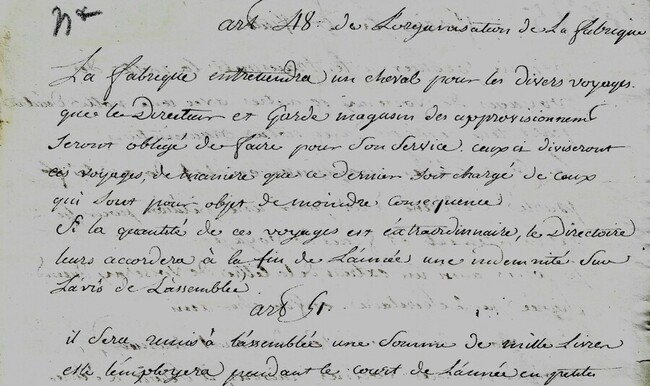 art 48. de L'organisation de La fabrique
La fabrique entretiendra un cheval pour les divers voyages.
que le Directeur et Garde magasin des approvisionnemts
Seront obligé de faire pour Son Service, ceux ci diviseront
ces voyages, de maniere que ce dernier soit chargé de ceux
qui sont pour objet de moindre consequence
Si la quantité de ces voyages est extraordinaire, le Directoire
leurs accordera à la fin de L'année une indemnité Sur
L'avis de L'assemblée
art 51.
il Sera remis à l'assemblée une Somme de mille Livres
elle l'employera pendant le court de L'année en petits